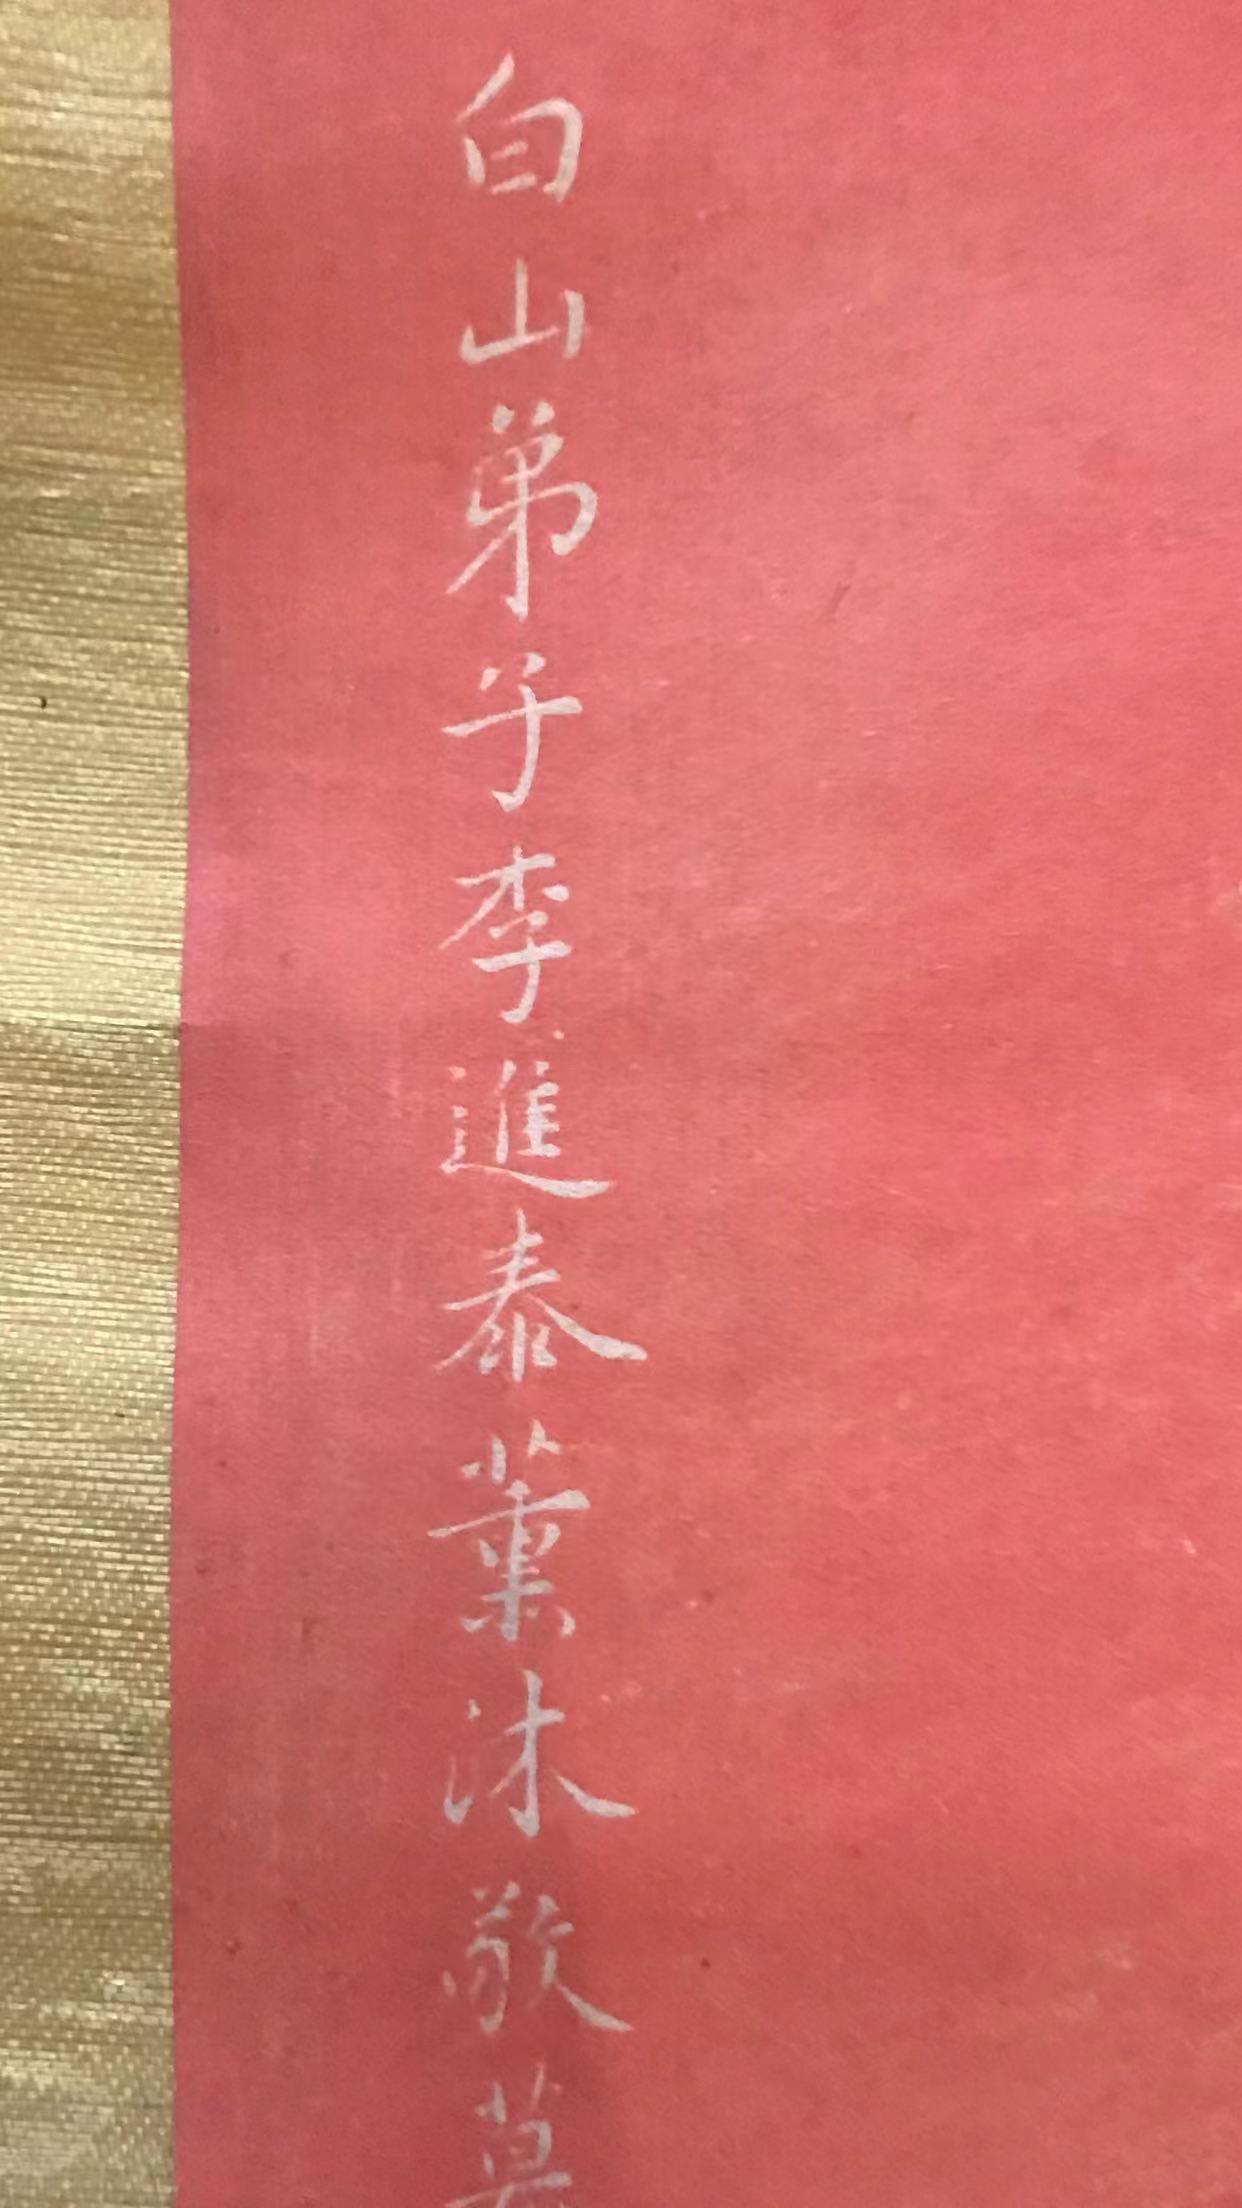 白山弟子李進泰薰沐敬